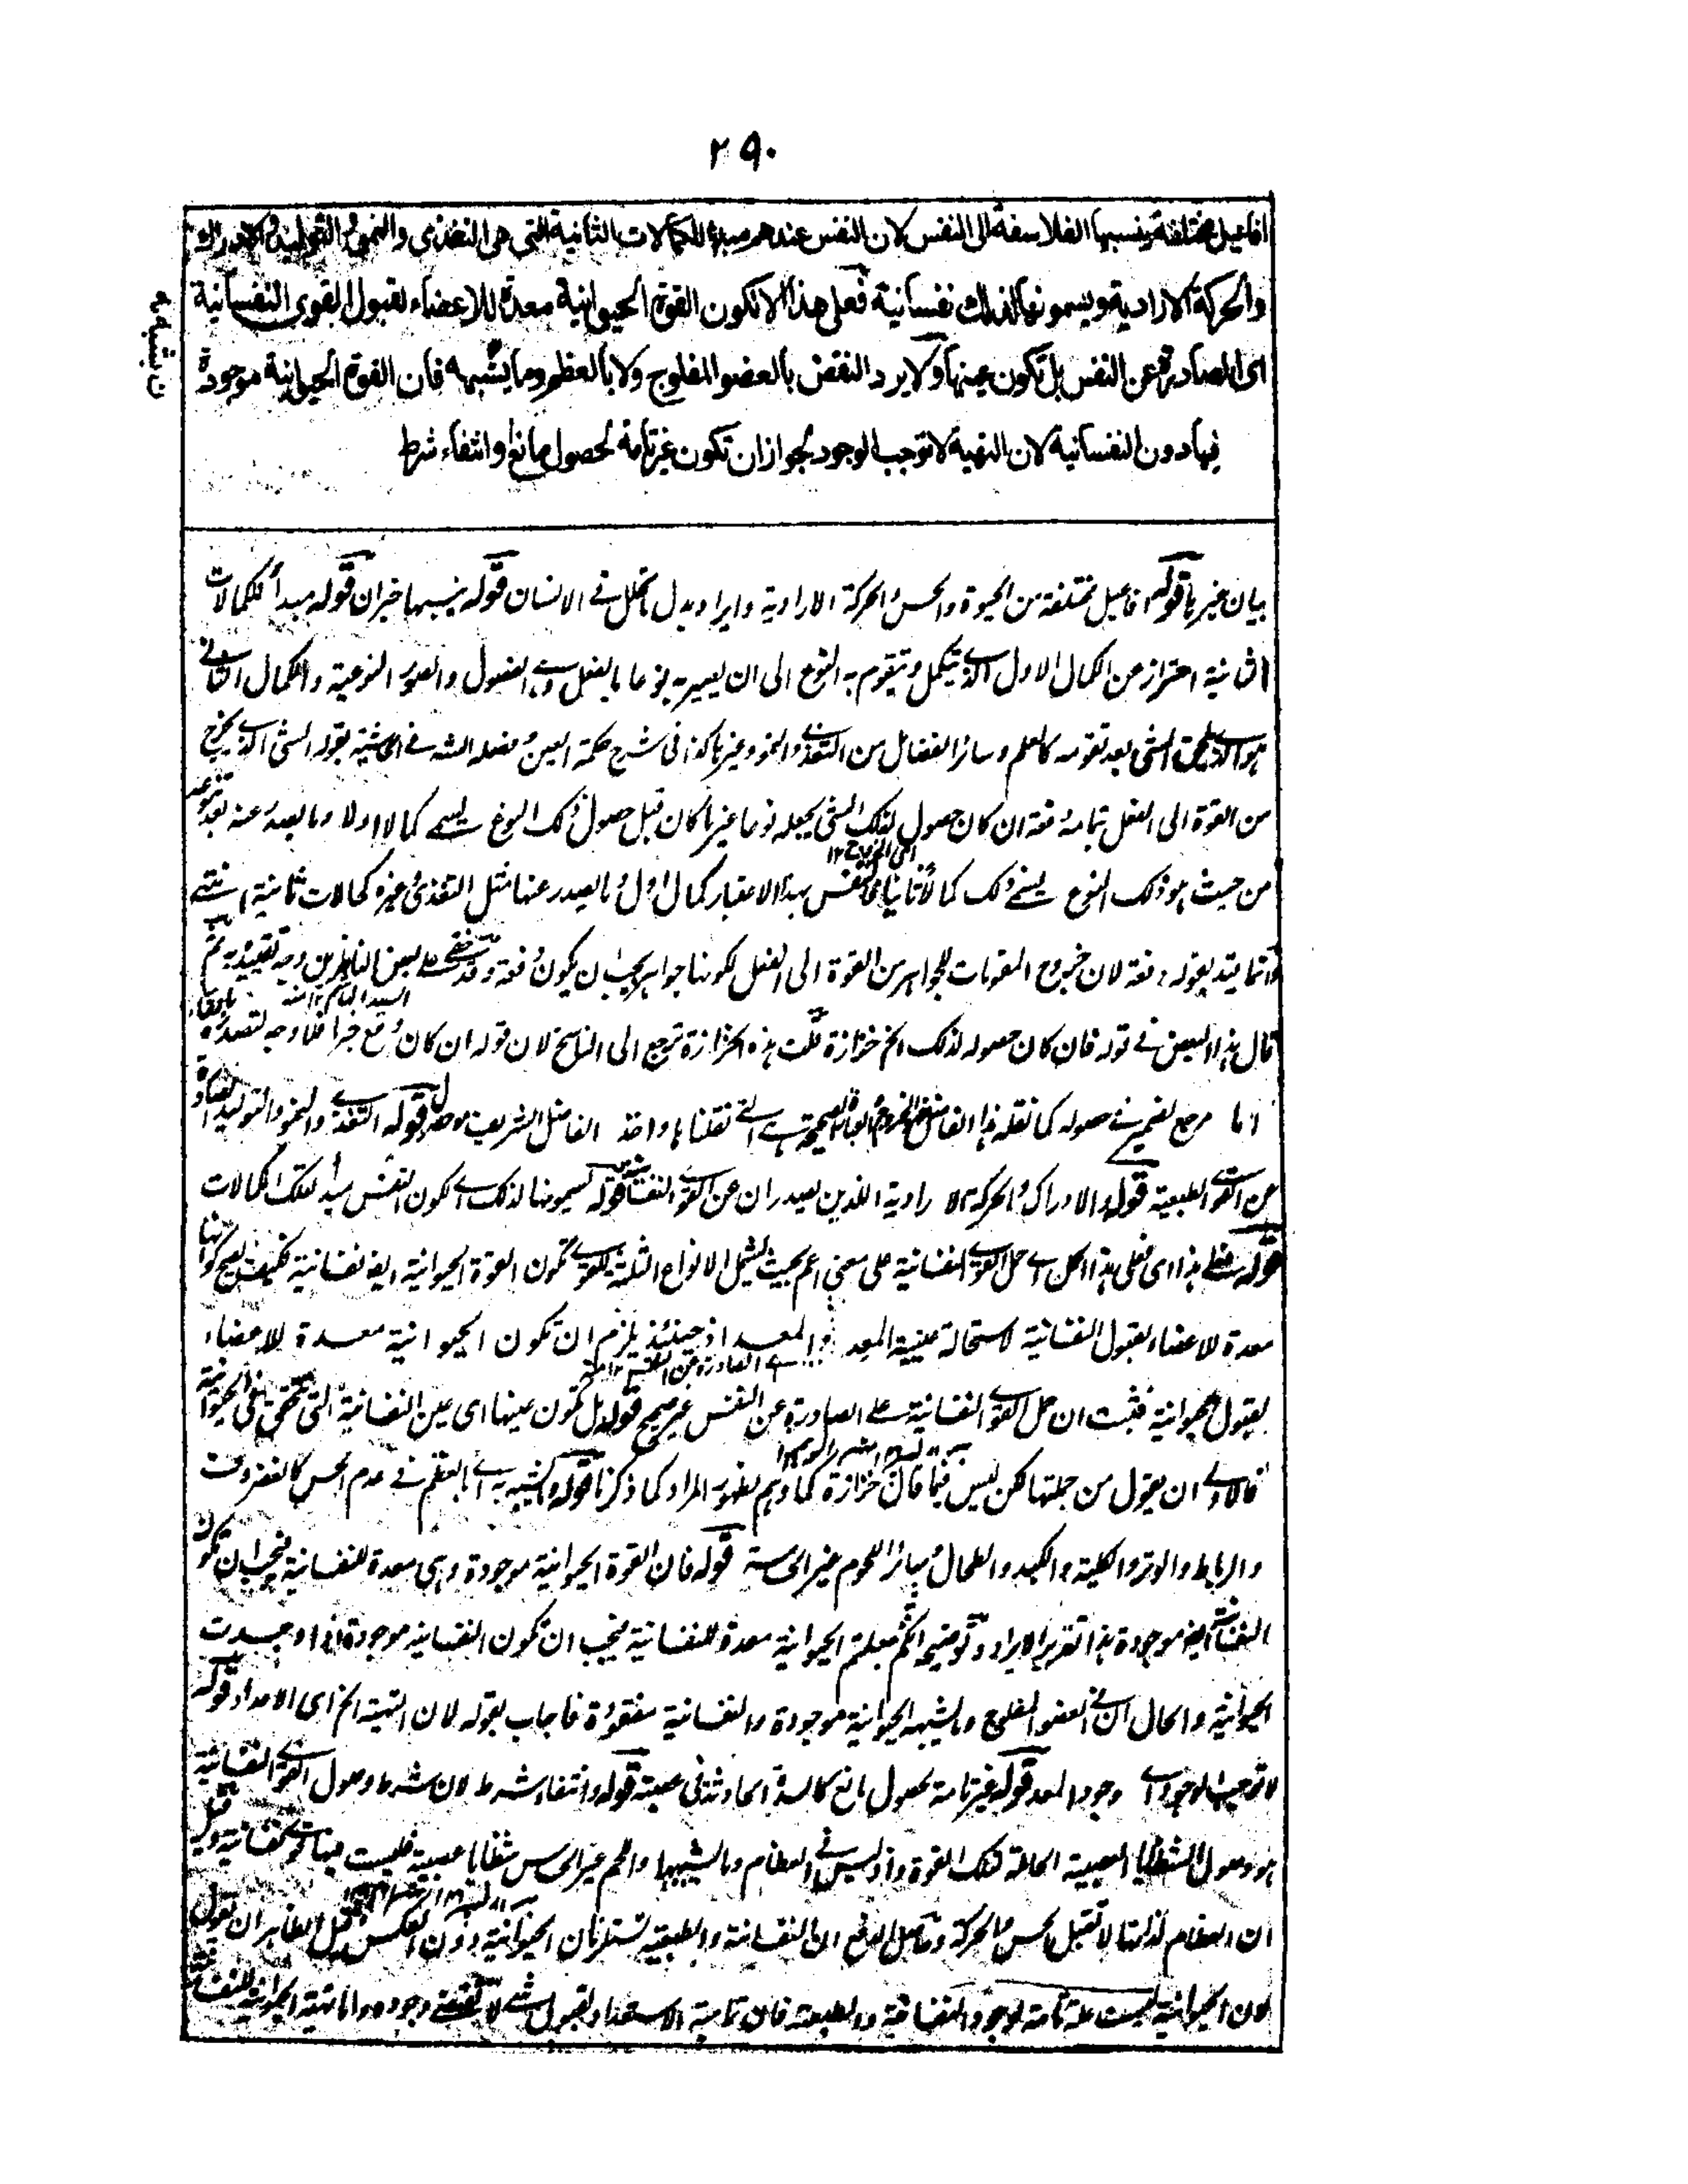 ٢٩٠
افاعيل مختلفة ينسبها الفلاسفة الى النفس لان النفس عندهم مبدء للكمالات الثانية التى هى التغذى والنمو والتوليد والادراك
والحركة الارادية ويسمونها لذلك نفسانية فعلى هذا لا تكون القوة الحيوانية معدة للاعضاء لقبول القوى النفسانية
اى الصادرة عن النفس بل تكون عينها ولا يرد النقض بالعضو المفلوج ولا بالعظم وما يشبهه فان القوة الحيوانية موجودة
فيها دون النفسانية لان التهية لا توجب الوجود لجواز ان تكون غير تامة لحصول مانع وانتفاء شرط
بيان غيرها قوله افاعيل مختلفة من الحيوة والحس والحركة الارادية وايراد بدل ما تحلل فى الانسان قوله ينسبها خبر ان قوله مبدأ للكمالات
الثانية احتراز عن الكمال الاول الذى يتكمل ويتقوم به النوع الى ان يصير به نوعا بالفعل وهى الفصول والصور النوعية والكمال الثانى
هو الذى يلحق الشئ بعد تقومه كالعلم وسائر الفضائل من التغذى والنمو وغيرها كذا فى شرح حكمة العين وفصله الشه فى الحاشية بقوله الشئ الذى يخرج
من القوة الى الفعل بتمامه دفعة ان كان حصول لذلك الشئ يجعله نوعا غير ما كان قبل حصول ذلك النوع يسمى كمالا اولا وما يصدر عنه بعد
من حيث هو ذلك النوع يسمى ذلك كمالا ثانيا فالنفس بهذا الاعتبار كمال اول وما يصدر عنها مثل التغذى وغيره كمالات ثانية انتهى
وانما قيد بقوله دفعة لان خروج المقومات للجواهر من القوة الى الفعل لكونها جواهر يجب ان يكون دفعة وقد خفى على بعض الناظرين وجه تقييده به ثم
قال هذا البعض فى قوله فان كان حصوله لذلك الخ حزازة قلت هذه الحزازة ترجع الى الناسخ لان قوله ان كان وقع جزاء فلا وجه لتصدره
مرجع الضمير فى حصوله كما نقله هذا الفاضل التى نقلناها واخذ الفاضل الشريف قوله التغذى والنمو والتوليد
عن القوى الطبيعية قوله والادراك والحركة الارادية اللذين يصدران عن القوى النفسانية قوله يسمونها لذلك اى لكون النفس مبدأ لتلك الكمالات
قوله فعلى هذا اى فعلى هذا الحل اى حمل القوى النفسانية على معنى اعم بحيث يشمل الانواع الثلثة للقوى تكون القوة الحيوانية ايضا نفسانية فكيف يصح كونها
معدة للاعضاء لقبول النفسانية لاستحالة عينية المعد والمعد اذ حينئذ يلزم ان تكون الحيوانية معدة للاعضاء
لقبول الحيوانية فثبت ان حمل القوى النفسانية على الصادرة عن النفس غير صحيح قوله بل تكون عينها اى عين النفسانية التى
فالاولى ان يقول من جملتها لكن ليس فيما قال حزازة كما وهم لظهور المراد كما ذكرنا قوله وما يشبهه اى بالعظم فى عدم الحس كالغضروف
والرباط والوتر والكلية والكبد والطحال وسائر اللحوم غير الحساسة قوله فان القوة الحيوانية موجودة وهى معدة للنفسانية فيجب ان تكون
النفسانية ايضا موجودة هذا تقرير الايراد وتوضيحه انكم جعلتم الحيوانية معدة للنفسانية فيجب ان تكون النفسانية موجودة اذا وجدت
الحيوانية والحال ان فى العضو المفلوج وما يشبهه الحيوانية موجودة والنفسانية مفقودة فاجاب بقوله لان التهية الخ اى الاعداد قوله
لا توجب الوجود اى وجود المعد قوله غير تامة لحصول مانع كالسدة الحادثة فى عصبة قوله وانتفاء شرط لان شرط وصول القوى النفسانية
هو وصول الشظايا العصبية الحاملة لتلك القوة واذ ليس فى العظام وما يشبهها واللحم غير الحاس شظايا عصبية فليست فيها قوى نفسانية وقيل
ان العظام لذاتها لا تقبل الحس والحركة وحاصل الدفع ان النفسانية والطبيعية تستلزمان الحيوانية دون العكس الظاهر ان يقول
لان الحيوانية ليست علة تامة لوجود النفسانية والطبيعية فان تمامية الاستعداد لقبول شئ لا تقتضى وجوده